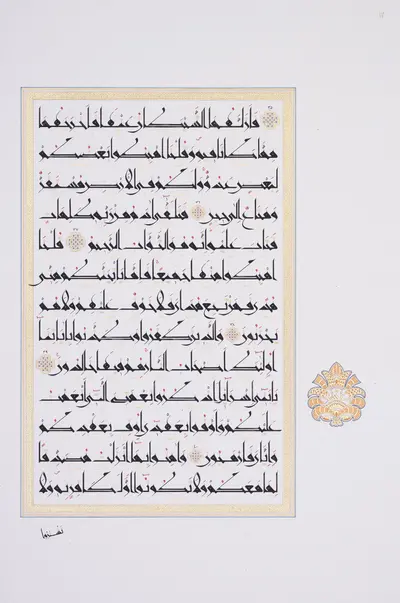 فأزلهما الشيطان عنها فأخرجهما
مما كانا فيه وقلنا اهبطوا بعضكم
لبعض عدو ولكم في الأرض مستقر
ومتاع إلى حين فتلقى آدم من ربه كلمات
فتاب عليه إنه هو التواب الرحيم قلنا
اهبطوا منها جميعا فإما يأتينكم مني
هدى فمن تبع هداي فلا خوف عليهم ولا هم
يحزنون والذين كفروا وكذبوا بآياتنا
أولئك أصحاب النار هم فيها خالدون
يا بني إسرائيل اذكروا نعمتي التي أنعمت
عليكم وأوفوا بعهدي أوف بعهدكم
وإياي فارهبون وآمنوا بما أنزلت مصدقا
لما معكم ولا تكونوا أول كافر به ولا
تشتروا